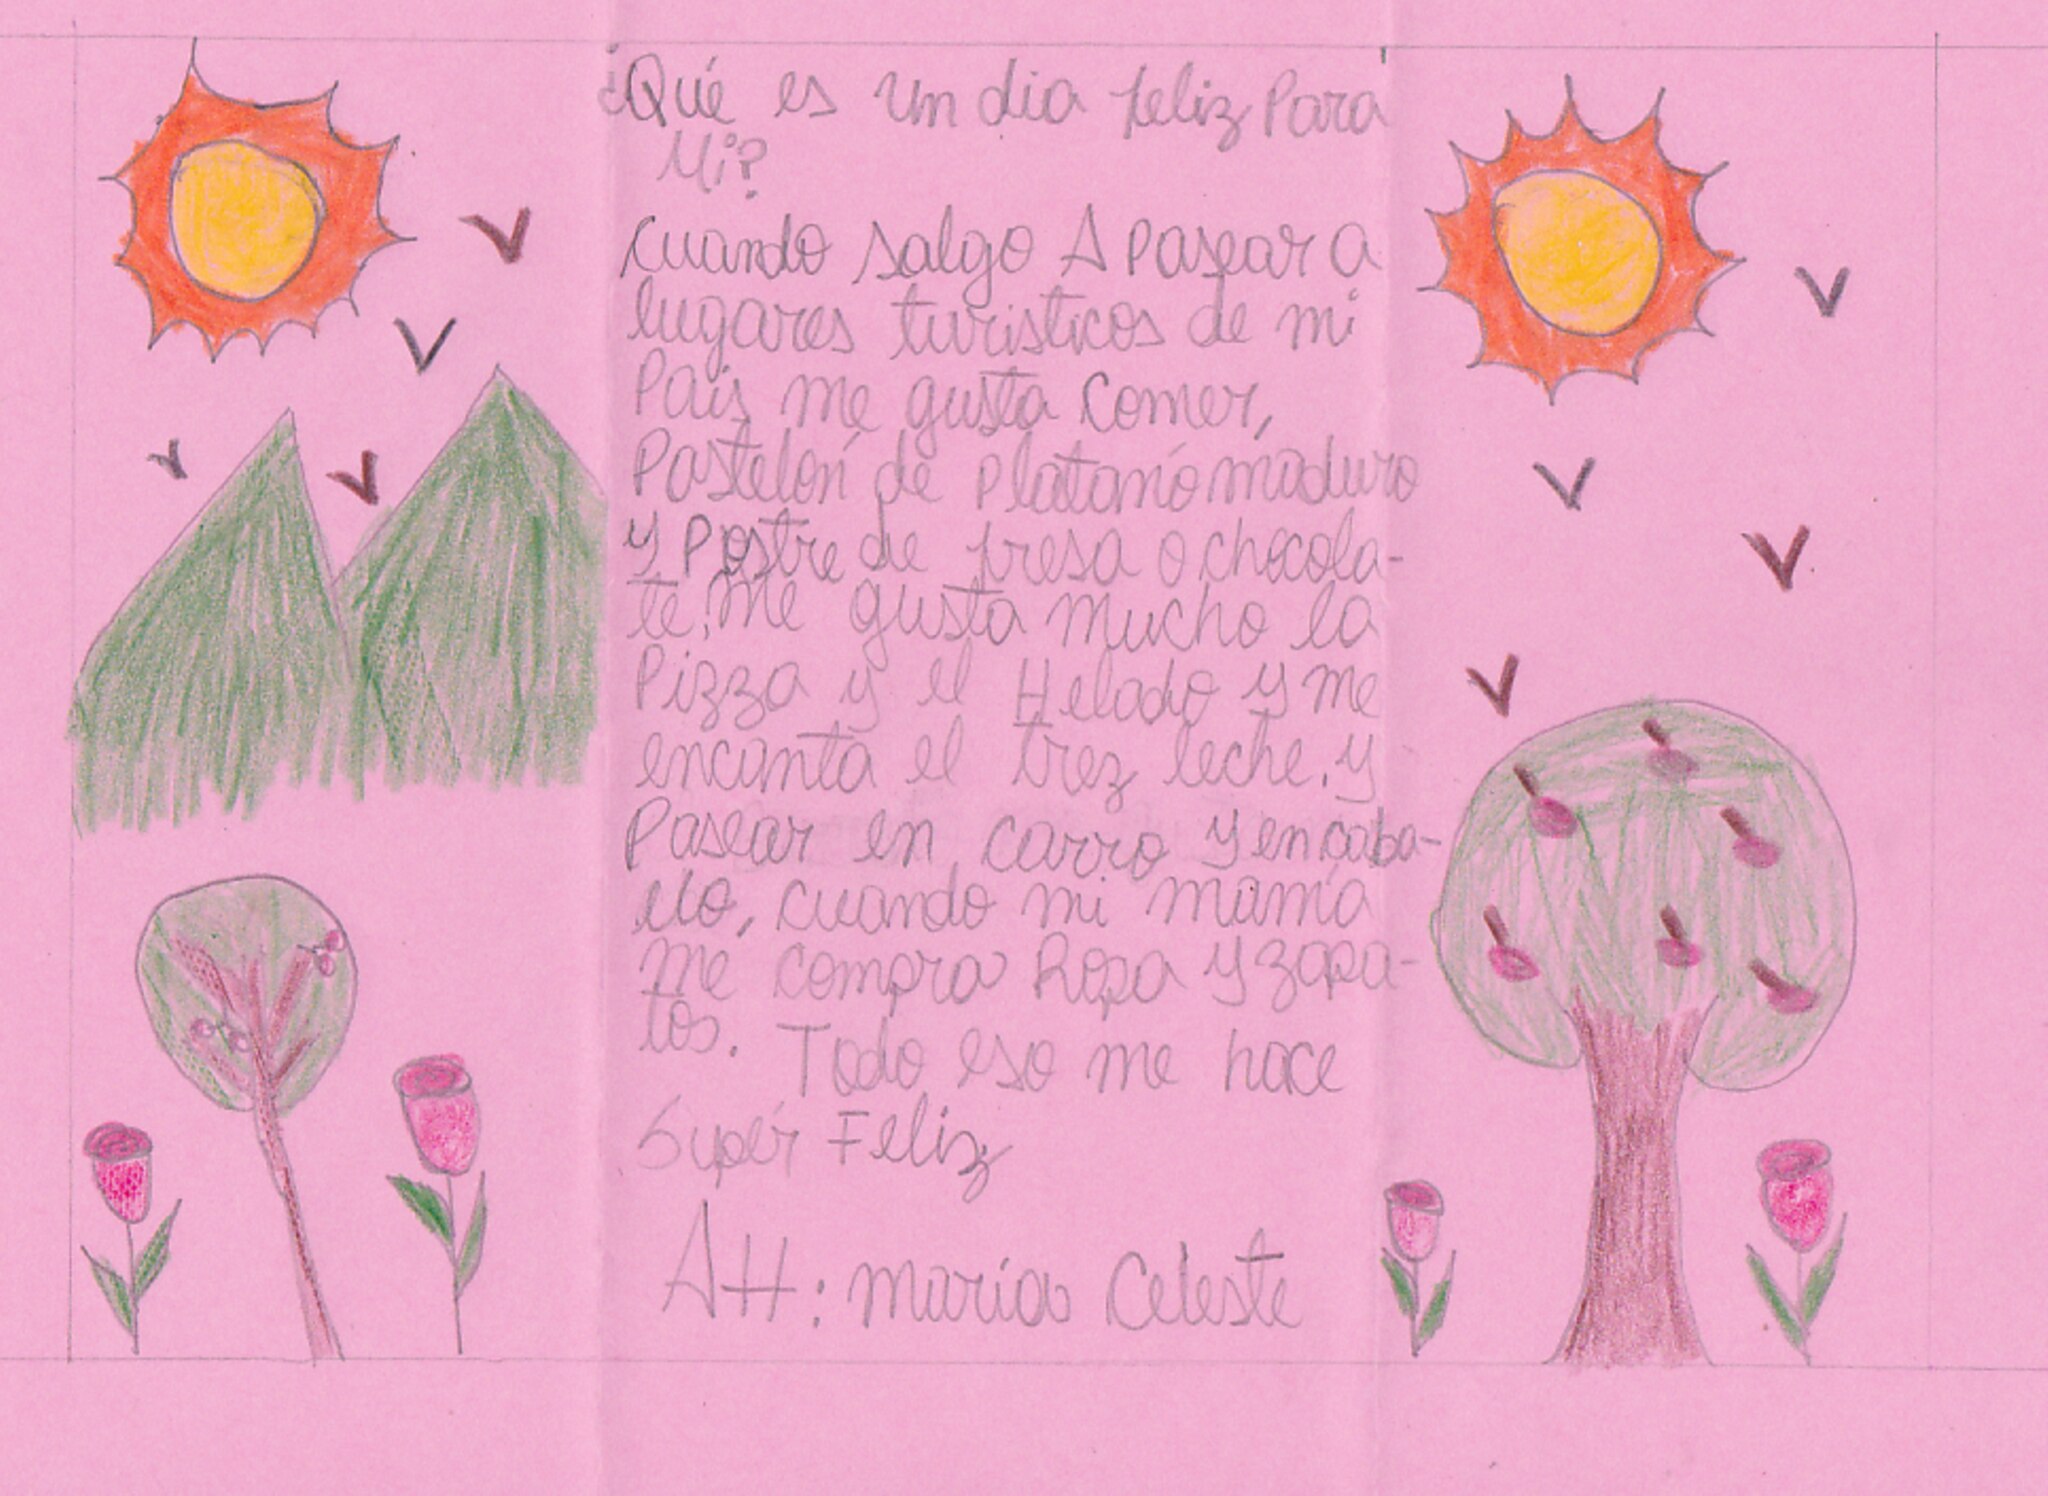 ¿Qué es un dia feliz Para
Mi?
cuando salgo A Pasear a
lugares turisticos de mi
Pais me gusta comer,
Pastelón de platanó maduro
y Postre de fresa o chocola-
te. me gusta mucho la
Pizza y el Helado y me
encanta el trez leche. y
Pasear en carro y en caba-
llo, cuando mi mamá
me compra Ropa y zapa-
tos. Todo eso me hace
Supér Feliz
Att: maría Celeste